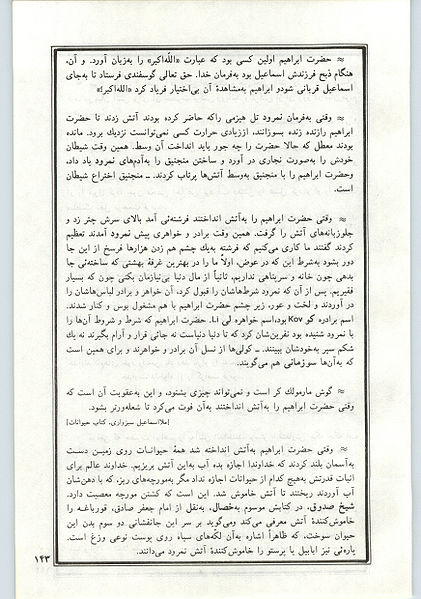 ≈ حضرت ابراهیم اولین کسی بود که عبارت «اللّه‌اکبر» را به‌زبان آورد. و آن،
هنگام ذبح فرزندش اسماعیل بود به‌فرمان خدا. حق تعالی گوسفندی فرستاد تا به‌جای
اسماعیل قربانی شود و ابراهیم به‌مشاهدهٔ آن بی‌اختیار فریاد کرد «اللّه‌اکبر!»
≈ وقتی به‌فرمان نمرود تل هیزمی را که حاضر کرده بودند آتش زدند تا حضرت
ابراهیم را زنده زنده بسوزانند، از زیادی حرارت کسی نمی‌توانست نزدیك برود. مانده
بودند معطل که حالا حضرت را چه جور باید انداخت آن وسط. همین وقت شیطان
خودش را به‌صورت نجاری در آورد و ساختن منجنیق را به‌آدم‌های نمرود یاد داد،
و حضرت ابراهیم را با منجنیق به‌وسط آتش‌ها پرتاب کردند. ــ منجنیق اختراع شیطان
است.
≈ وقتی حضرت ابراهیم را به‌آتش انداختند فرشته‌ئی آمد بالای سرش چتر زد و
جلو زبانه‌های آتش را گرفت. همین وقت برادر و خواهری پیش نمرود آمدند تعظیم
کردند گفتند ما کاری می‌کنیم که فرشته به‌یك چشم هم زدن هزارها فرسخ از این جا
دور بشود به‌شرط این که در عوض، اولاً ما را در بهترین غرفهٔ بهشتی که ساخته‌ئی جا
بدهی چون خانه و سرپناهی نداریم، ثانیاً از مال دنیا بی‌نیازمان بکنی چون که بسیار
فقیریم. پس از آن که نمرود شرط‌هاشان را قبول کرد، آن خواهر و برادر لباس‌هاشان را
در آوردند و لخت و عور، زیر چشم حضرت ابراهیم با هم مشغول بوس و کنار شدند.
اسم برادره کو Kov بود، اسم خواهره لی Li. حضرت ابراهیم که شرط و شروط آن‌ها را
با نمرود شنیده بود نفرین‌شان کرد که تا دنیا دنیاست نه جائی قرار و آرام بگیرند نه یك
شکم سیر به‌خودشان ببینند. ــ کولی‌ها از نسل آن برادر و خواهرند و برای همین است
که به‌آن‌ها سوزمانی هم می‌گویند.
≈ گوش مارمولك کر است و نمی‌تواند چیزی بشنود، و این به‌عقوبت آن است که
وقتی حضرت ابراهیم را به‌آتش انداختند به‌آن فوت می‌کرد تا شعله‌ورتر بشود.
[ملااسماعیل سبزواری، کتاب حیوانات]
≈ وقتی حضرت ابراهیم به‌آتش انداخته شد همهٔ حیوانات روی زمین دست
به‌آسمان بلند کردند که خداوندا اجازه بده آب به‌این آتش بریزیم. خداوند عالم برای
اثبات قدرتش به‌هیچ کدام از حیوانات اجازه نداد مگر به‌مورچه‌های ریز، که با دهن‌شان
آب آوردند ریختند تا آتش خاموش شد. این است که کشتن مورچه معصیت دارد.
شیخ صدوق، در کتابش موسوم به‌خصال، به‌نقل از امام جعفر صادق، قورباغه را
خاموش‌کنندهٔ آتش معرفی می‌کند و می‌گوید بر سر این جانفشانی دو سوم بدن این
حیوان سوخت، که ظاهراً اشاره به‌آن لکّه‌های سیاه روی پوست نوعی وزغ است.
پاره‌ئی نیز ابابیل یا پرستو را خاموش‌کنندهٔ آتش نمرود می‌دانند.
۱۴۳